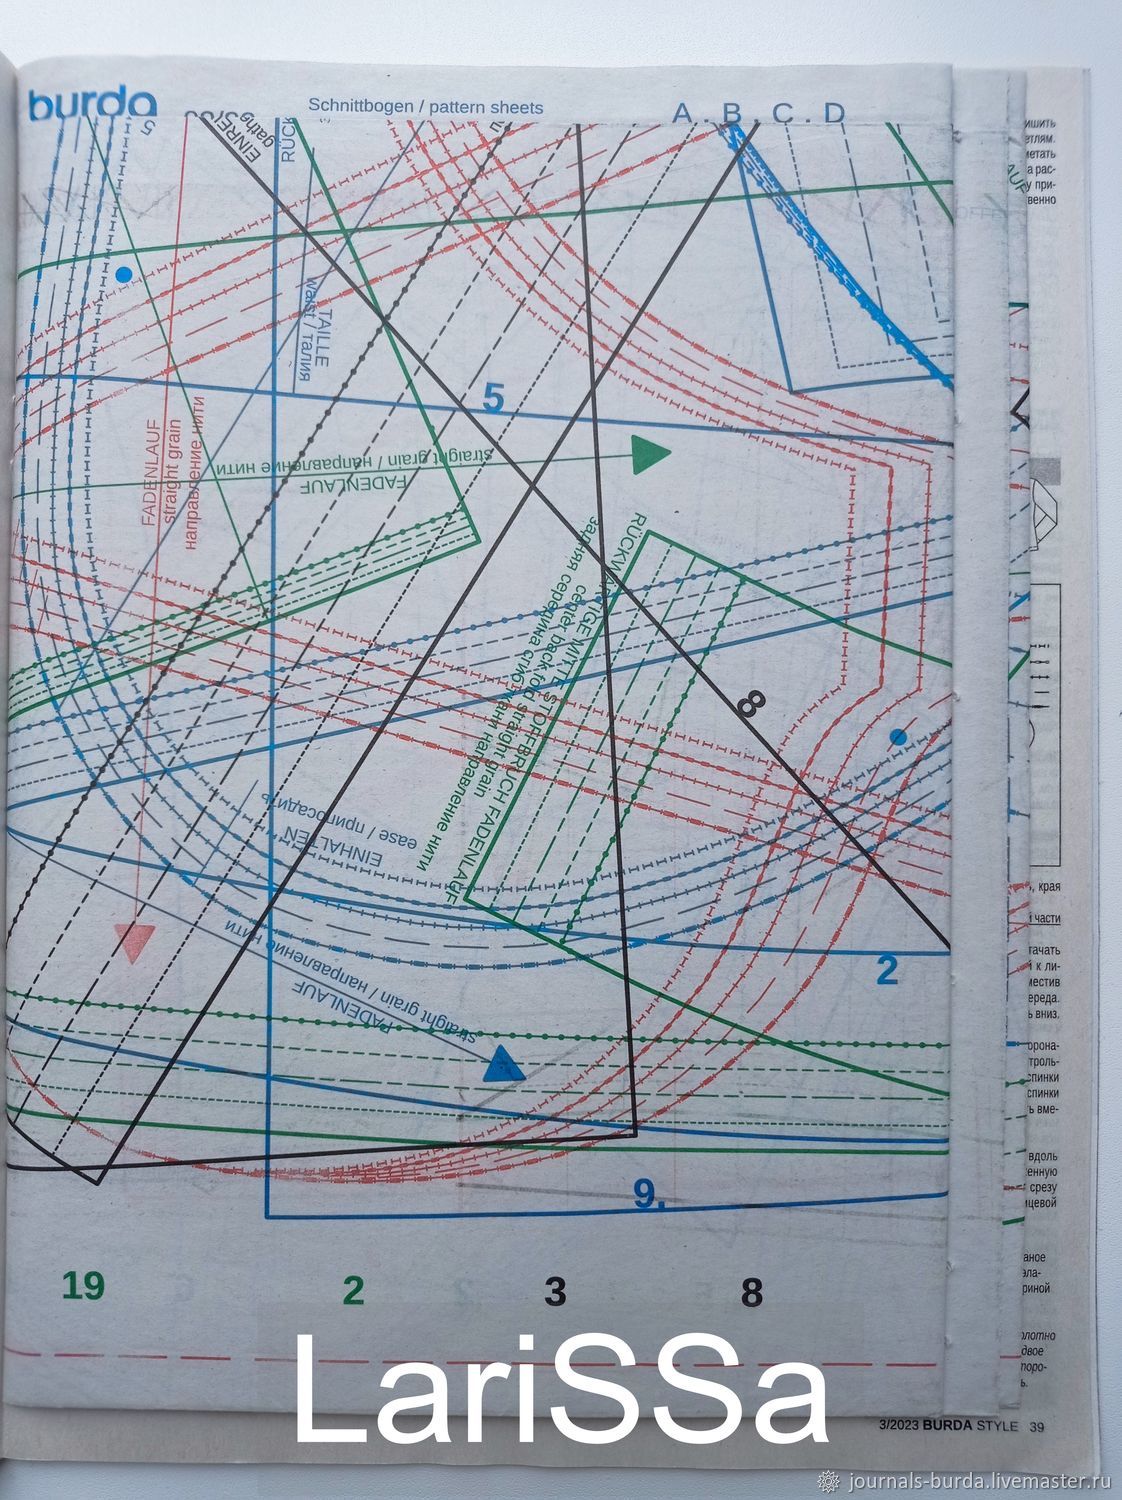 burda
Schnittbogen / pattern sheets
A . B . C . D
5
EINRE
gathe
RÜCK
TAILLE
waist / талия
5
FADENLAUF
straight grain
направление нити
straight grain / направление нити
FADENLAUF
RÜCKWÄRTIGE MITTE STOFFBRUCH FADENLAUF
center back fold straight grain
задняя середина сгиб ткани направление нити
8
ease / припосадить
EINHALTEN
2
straight grain / направление нити
FADENLAUF
9.
19
2
3
8
LariSSa
ишить
етлям.
метать
а рас-
у при-
венно
, края
й части
тачать
й к ли-
местив
ереда.
ь вниз.
орона-
троль-
спинки
спинки
ь вме-
вдоль
енную
срезу
ицевой
аное
эла-
риной
олотно
двое
торо-
ь.
3/2023 BURDA STYLE 39
journals-burda.livemaster.ru